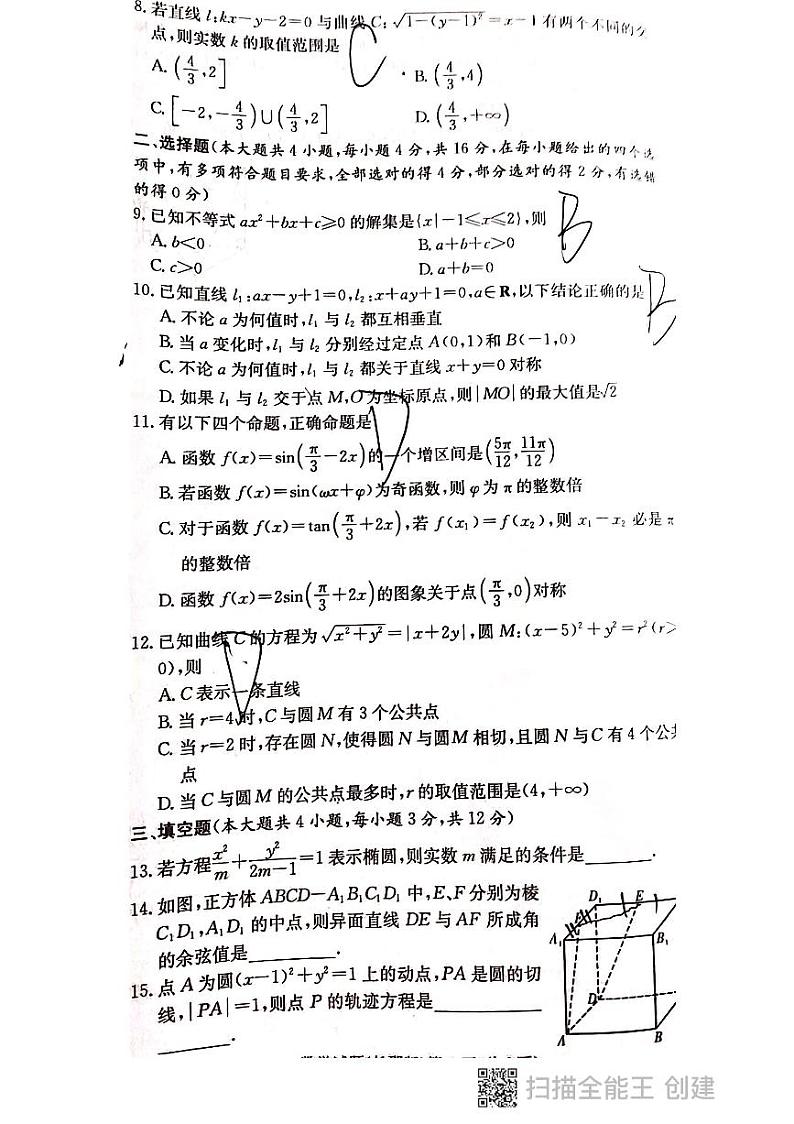 8. 若直线 l:kx-y-2=0 与曲线 C: √(1-(y-1)²) = x-1 有两个不同的
点,则实数 k 的取值范围是 C
A. (4/3,2]
B. (4/3,4)
C. [-2,-4/3)∪(4/3,2]
D. (4/3,+∞)
二、选择题(本大题共 4 小题,每小题 4 分,共 16 分,在每小题给出的四个选
项中,有多项符合题目要求,全部选对的得 4 分,部分选对的得 2 分,有选错
的得 0 分)
9. 已知不等式 ax²+bx+c⩾0 的解集是{x|-1⩽x⩽2},则 B
A. b<0
B. a+b+c>0
C. c>0
D. a+b=0
10. 已知直线 l₁:ax-y+1=0,l₂:x+ay+1=0,a∈R,以下结论正确的是 B
A. 不论 a 为何值时,l₁ 与 l₂ 都互相垂直
B. 当 a 变化时,l₁ 与 l₂ 分别经过定点 A(0,1)和 B(-1,0)
C. 不论 a 为何值时,l₁ 与 l₂ 都关于直线 x+y=0 对称
D. 如果 l₁ 与 l₂ 交于点 M,O为坐标原点,则|MO|的最大值是√2
11. 有以下四个命题,正确命题是 D
A. 函数 f(x)=sin(π/3-2x)的一个增区间是(5π/12,11π/12)
B. 若函数 f(x)=sin(ωx+φ)为奇函数,则 φ 为 π 的整数倍
C. 对于函数 f(x)=tan(π/3+2x),若 f(x₁)=f(x₂),则 x₁-x₂ 必是 π
的整数倍
D. 函数 f(x)=2sin(π/3+2x)的图象关于点(π/3,0)对称
12. 已知曲线 C 的方程为 √(x²+y²)=|x+2y|,圆 M:(x-5)²+y²=r²(r>
0),则 D
A. C 表示一条直线
B. 当 r=4 时,C 与圆 M 有 3 个公共点
C. 当 r=2 时,存在圆 N,使得圆 N 与圆M 相切,且圆 N 与C 有 4 个公共
点
D. 当 C 与圆 M 的公共点最多时,r 的取值范围是(4,+∞)
三、填空题(本大题共 4 小题,每小题 3 分,共 12 分)
13. 若方程x²/m+y²/(2m-1)=1 表示椭圆,则实数 m 满足的条件是______.
14. 如图,正方体 ABCD-A₁B₁C₁D₁ 中,E、F 分别为棱
C₁D₁,A₁D₁ 的中点,则异面直线 DE 与 AF 所成角
的余弦值是________.
D₁ E
F
A₁ B₁
D
A B
15. 点 A 为圆(x-1)²+y²=1 上的动点,PA 是圆的切
线,|PA|=1,则点 P 的轨迹方程是__________
______.
扫描全能王 创建